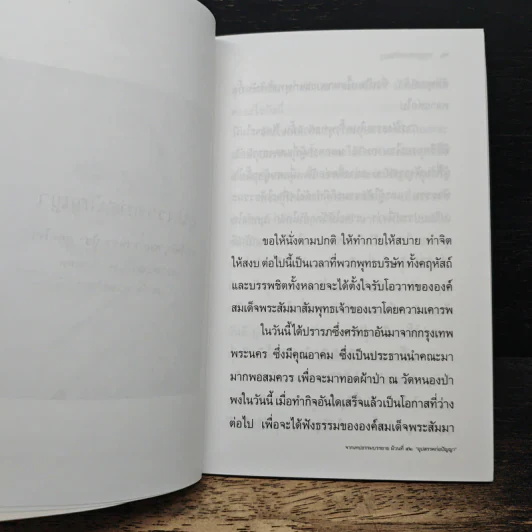 ขอให้นั่งตามปกติ ให้ทำกายให้สบาย ทำจิต
ให้สงบ ต่อไปนี้เป็นเวลาที่พวกพุทธบริษัท ทั้งคฤหัสถ์
และบรรพชิตทั้งหลายจะได้ตั้งใจรับโอวาทขององค์
สมเด็จพระสัมมาสัมพุทธเจ้าของเราโดยความเคารพ
ในวันนี้ได้ปรารภซึ่งศรัทธาอันมาจากกรุงเทพ
พระนคร ซึ่งมีคุณอาคม ซึ่งเป็นประธานนำคณะมา
มากพอสมควร เพื่อจะมาทอดผ้าป่า ณ วัดหนองป่า
พงในวันนี้ เมื่อทำกิจอันใดเสร็จแล้วเป็นโอกาสที่ว่าง
ต่อไป เพื่อจะได้ฟังธรรมขององค์สมเด็จพระสัมมา